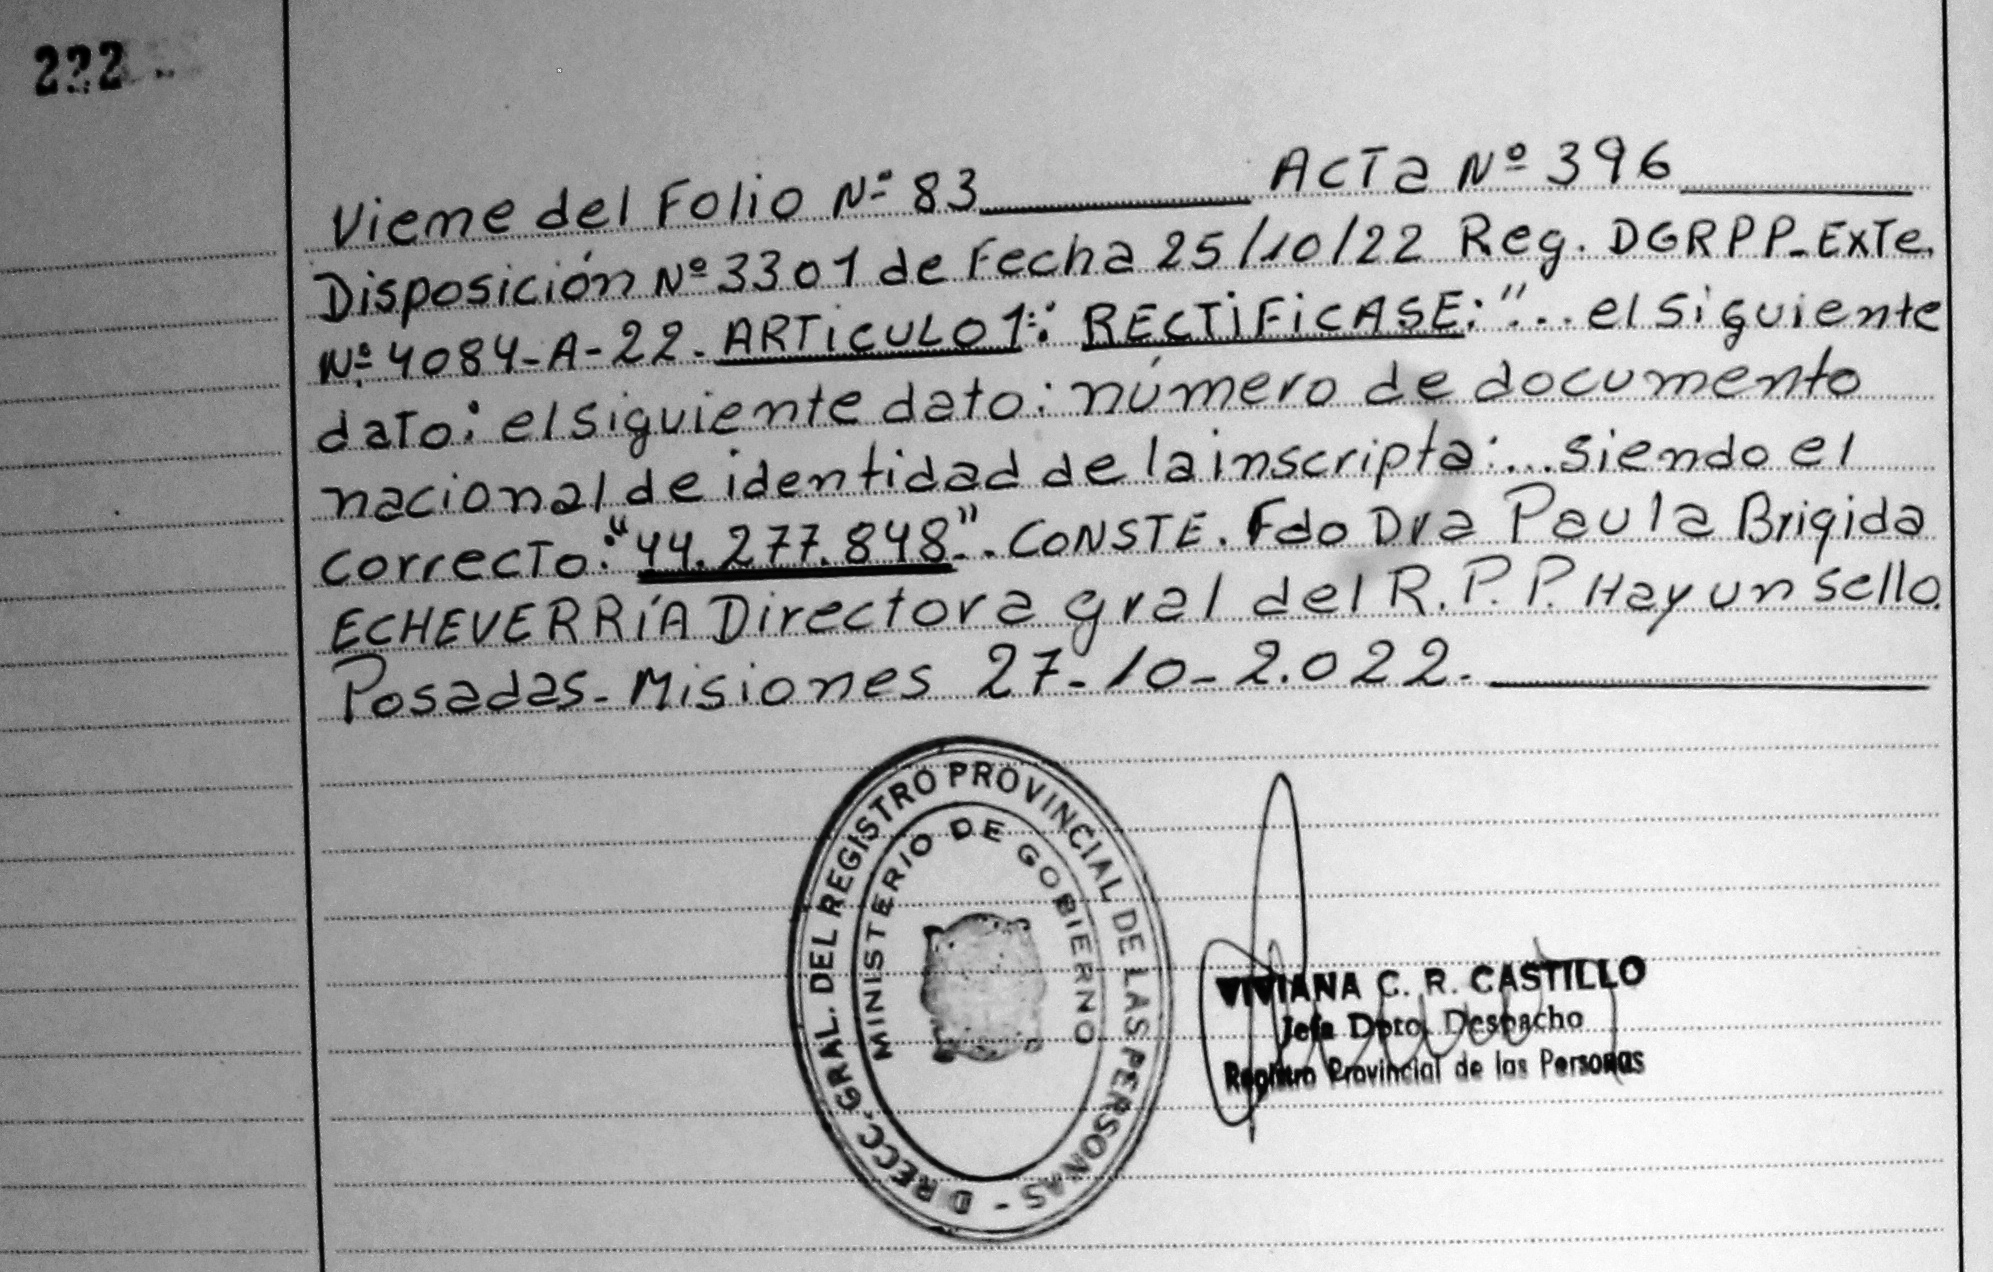 222
Vieme del Folio Nº 83 Acta Nº 396
Disposición Nº 3301 de Fecha 25/10/22 Reg. DGRPP-ExTe.
Nº 4084-A-22. ARTiCULO 1º: RECTiFiCASE: "... el siguiente
daTo: el siguiente dato: número de documento
nacional de identidad de la inscripta: ... siendo el
correcTo: "44.277.848". CONSTE. Fdo Dra Paula Brigida
ECHEVERRíA Directora gral del R.P.P. Hay un sello.
Posadas-Misiones 27-10-2.022.
DIRECC. GRAL. DEL REGISTRO PROVINCIAL DE LAS PERSONAS -
MINISTERIO DE GOBIERNO
VIVIANA C. R. CASTILLO
Jefa Dpto. Despacho
Registro Provincial de las Personas